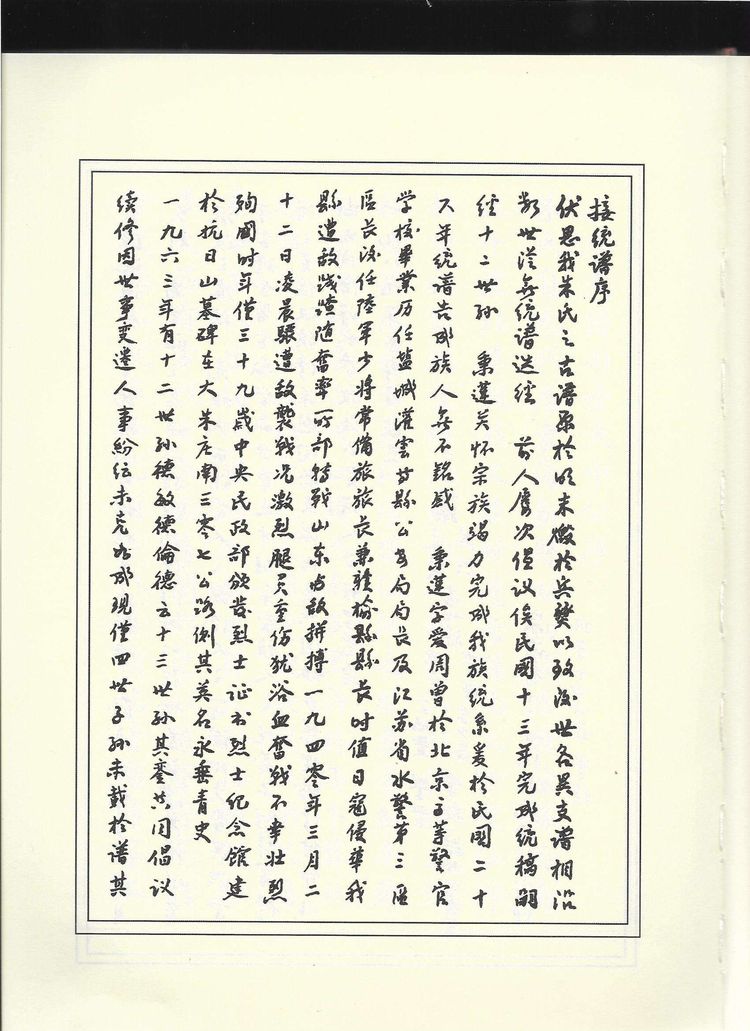 接统谱序
伏思我朱氏之古谱原於明末燬於兵燹以致后世各異支谱相沿
数世従無统谱迭经 前人屡次倡议俟民國十三年完成统稿嗣
经十二世孙 秉蓬关怀宗族竭力完成我族统系爰於民國二十
又年统谱告成族人無不銘感 秉蓬字爱周曾於北京高等警官
学校畢業历任盐城灌雲等縣公安局局長及江苏省水警第三區
區長後任陸軍少將常備旅旅長兼贛榆縣縣長时值日寇侵華我
縣遭敌践踏随奮率所部转戰山东与敌拼搏一九四零年三月二
十二日凌晨驟遭敌襲战况激烈腿负重伤犹浴血奮戰不幸壯烈
殉國时年僅三十九歲中央民政部颁发烈士证书烈士纪念館建
於抗日山墓碑在大朱庄南三零七公路侧其英名永垂青史
一九六三年有十二世孙德敏德倫德云十三世孙其奎共同倡议
续修因世事变遷人事紛纭未克如成現僅四世子孙未載於谱其